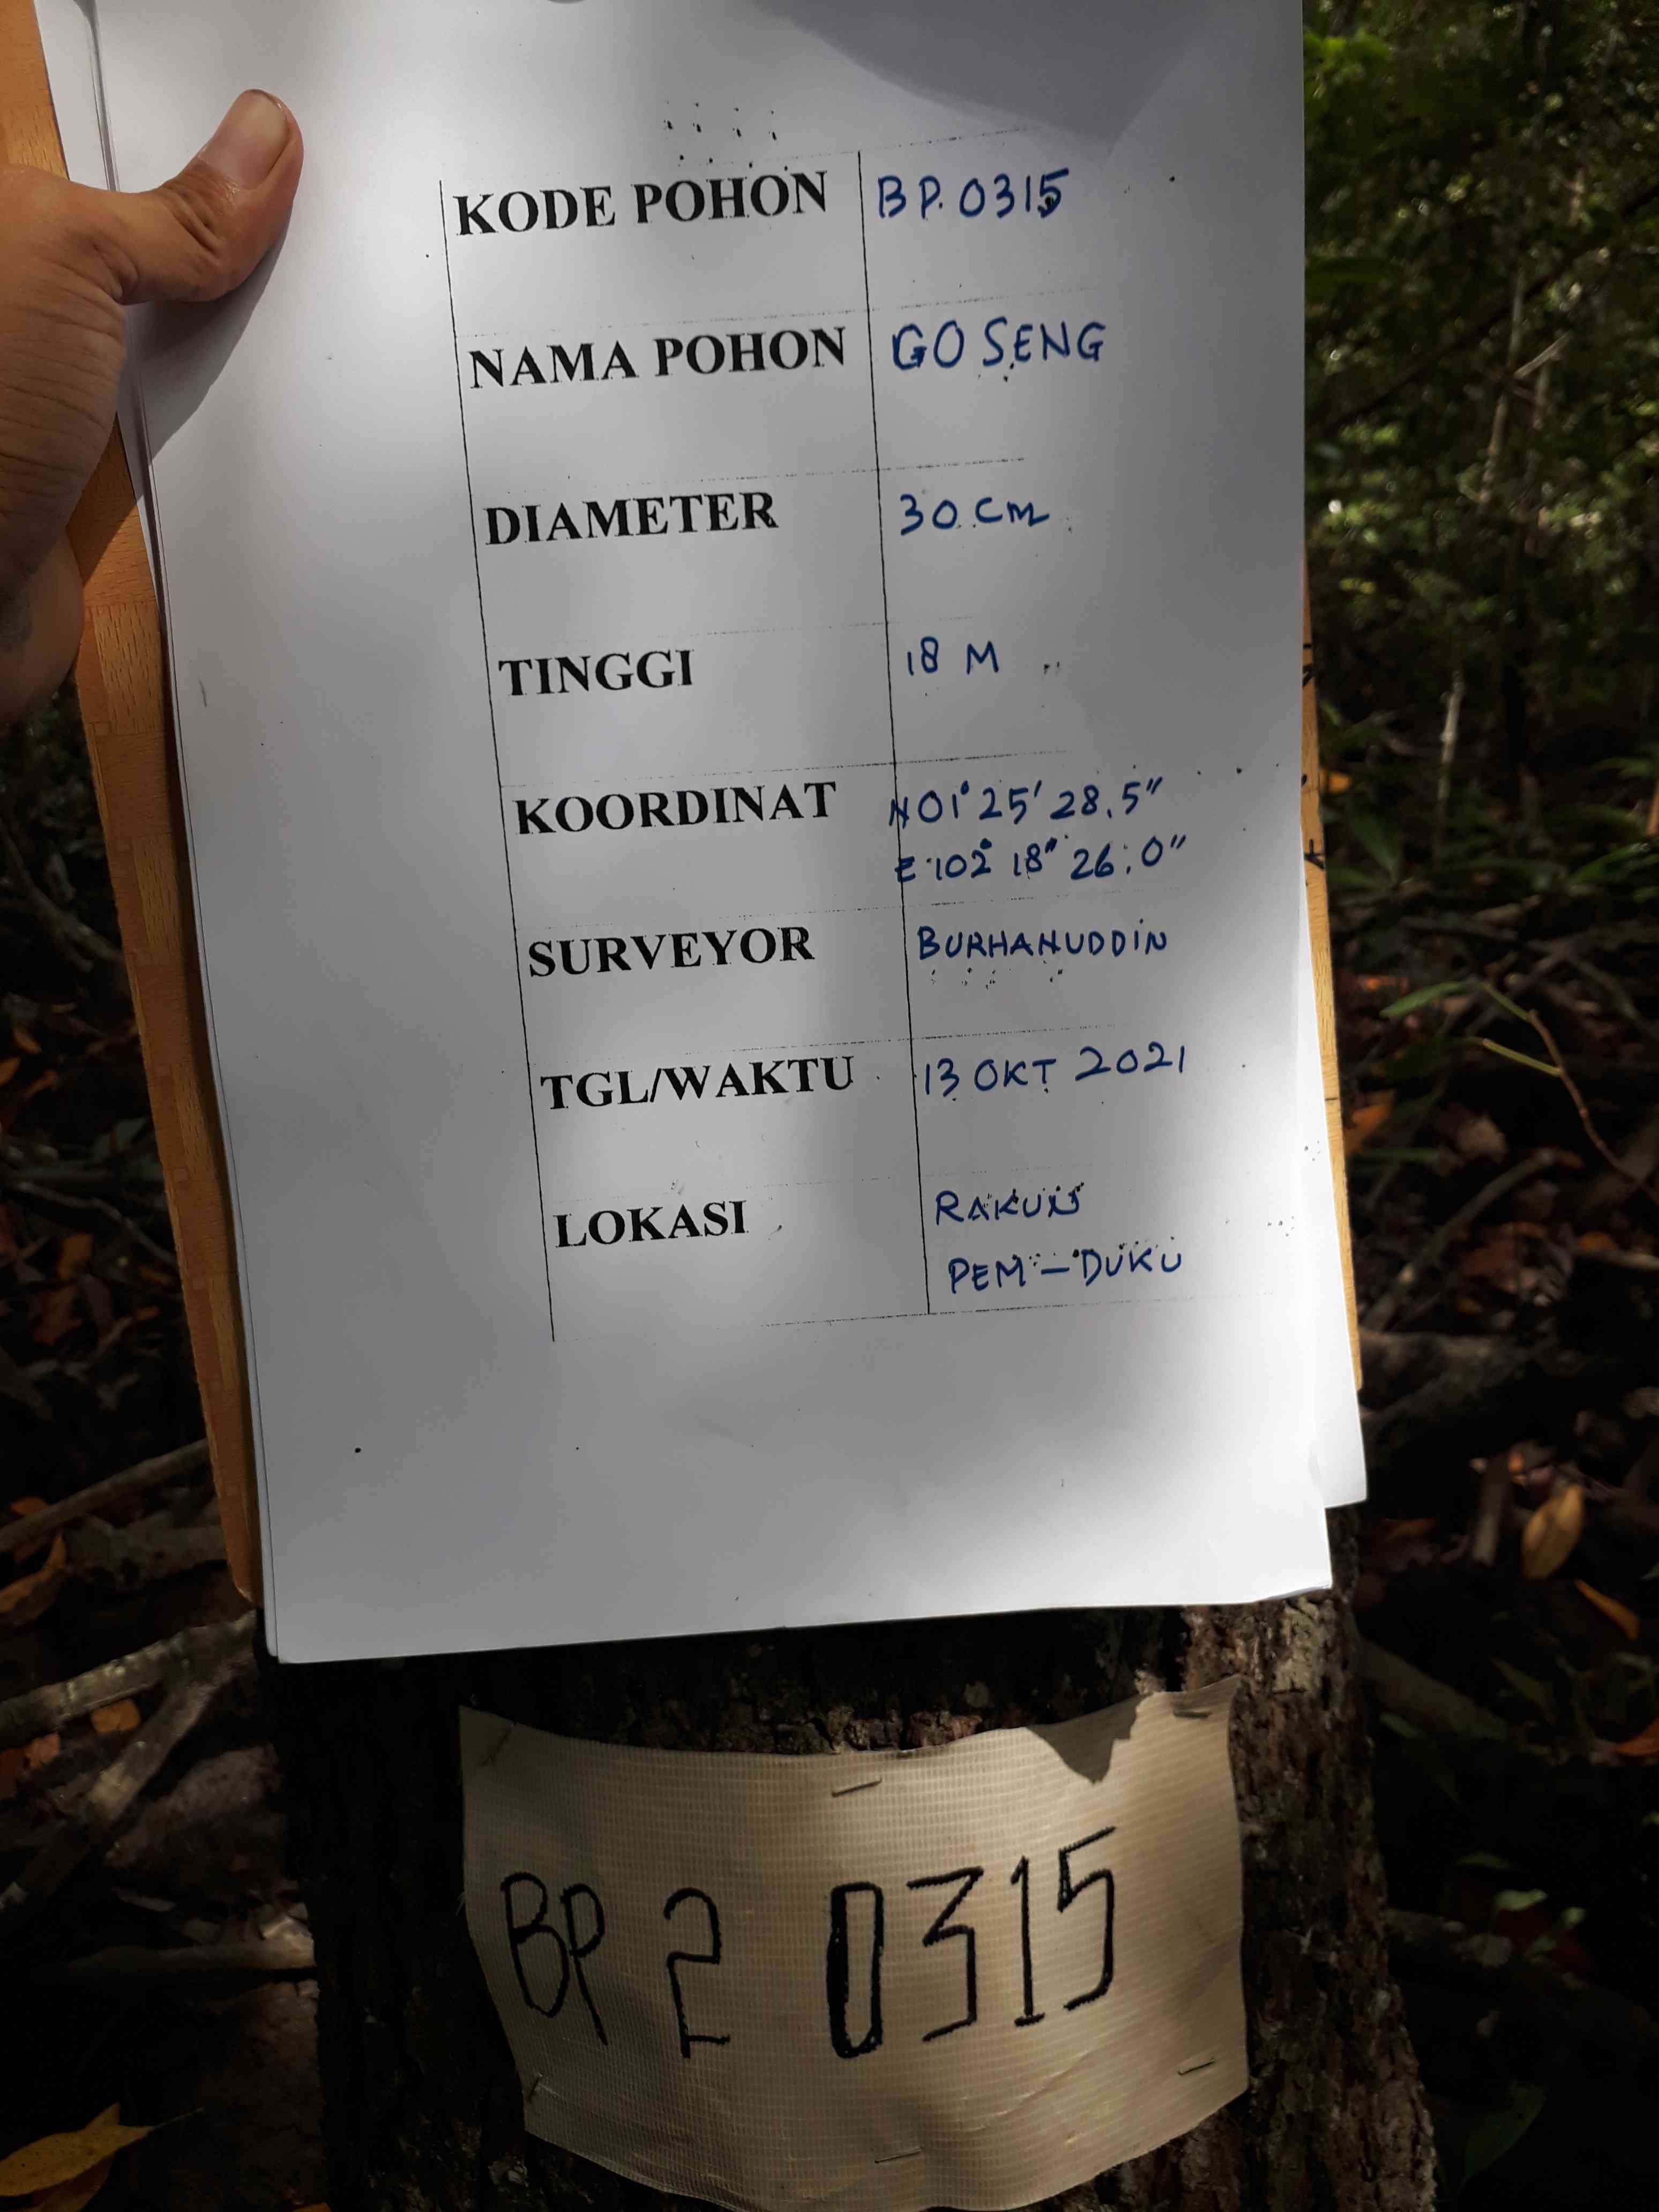 KODE POHON BP. 0315
NAMA POHON GOSENG
DIAMETER 30 cm
TINGGI 18 M
KOORDINAT N 01° 25' 28.5"
E 102° 18" 26.0"
SURVEYOR BURHANUDDIN
TGL/WAKTU 13 OKT 2021
LOKASI RAKUN
PEM - DUKU
BP 2 0315